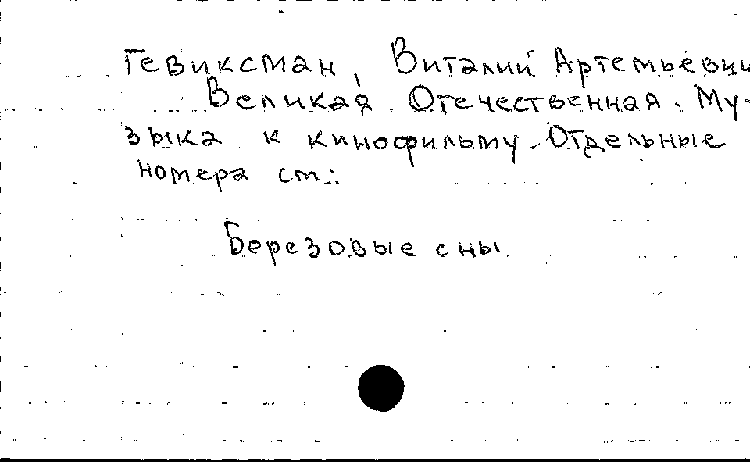 Гевиксман, Виталий Артемьевич
Великая Отечественная. Му-
зыка к кинофильму. Отдельные
номера см.:
Березовые сны